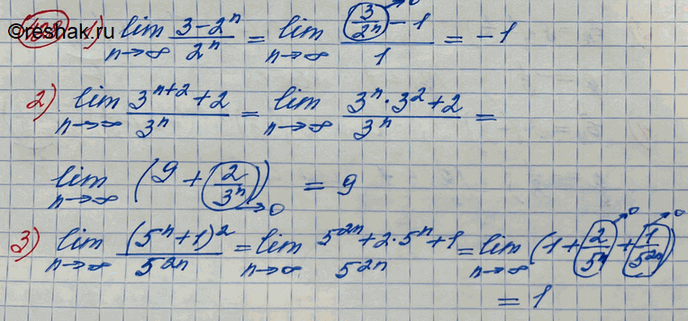 ©reshak.ru
1) lim n→∞ (3-2ⁿ)/2ⁿ = lim n→∞ (3/2ⁿ - 1)/1 = -1
2) lim n→∞ (3ⁿ⁺² + 2)/3ⁿ = lim n→∞ (3ⁿ · 3² + 2)/3ⁿ =
lim n→∞ (9 + 2/3ⁿ) →0 = 9
3) lim n→∞ (5ⁿ+1)²/5²ⁿ = lim n→∞ (5²ⁿ + 2·5ⁿ + 1)/5²ⁿ = lim n→∞ (1 + 2/5ⁿ →0 + 1/5²ⁿ →0)
= 1